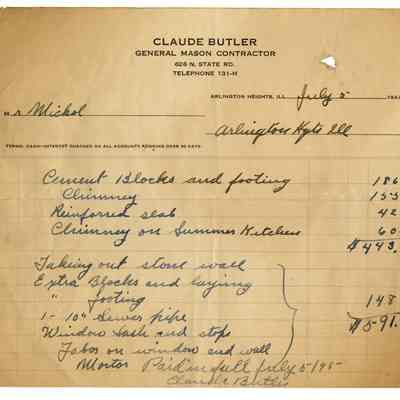 CLAUDE BUTLER
GENERAL MASON CONTRACTOR
626 N. STATE RD.
TELEPHONE 131-H
ARLINGTON HEIGHTS, ILL. July 5 19
Mickol
Arlington Hgts Ill
TERMS: CASH—INTEREST CHARGED ON ALL ACCOUNTS RUNNING OVER 30 DAYS
Cement Blocks and footing 186
Chimney 155
Reinforsed slab 42
Chimney on Summer Kitchen 60
$443.
Taking out stone wall
Extra Blocks and laying
" footing 148
1- 10" Sewer pipe $591.
Window sash and stops
Labor on window and wall
Mortor Paid in full July 5/45-
Claude Butler